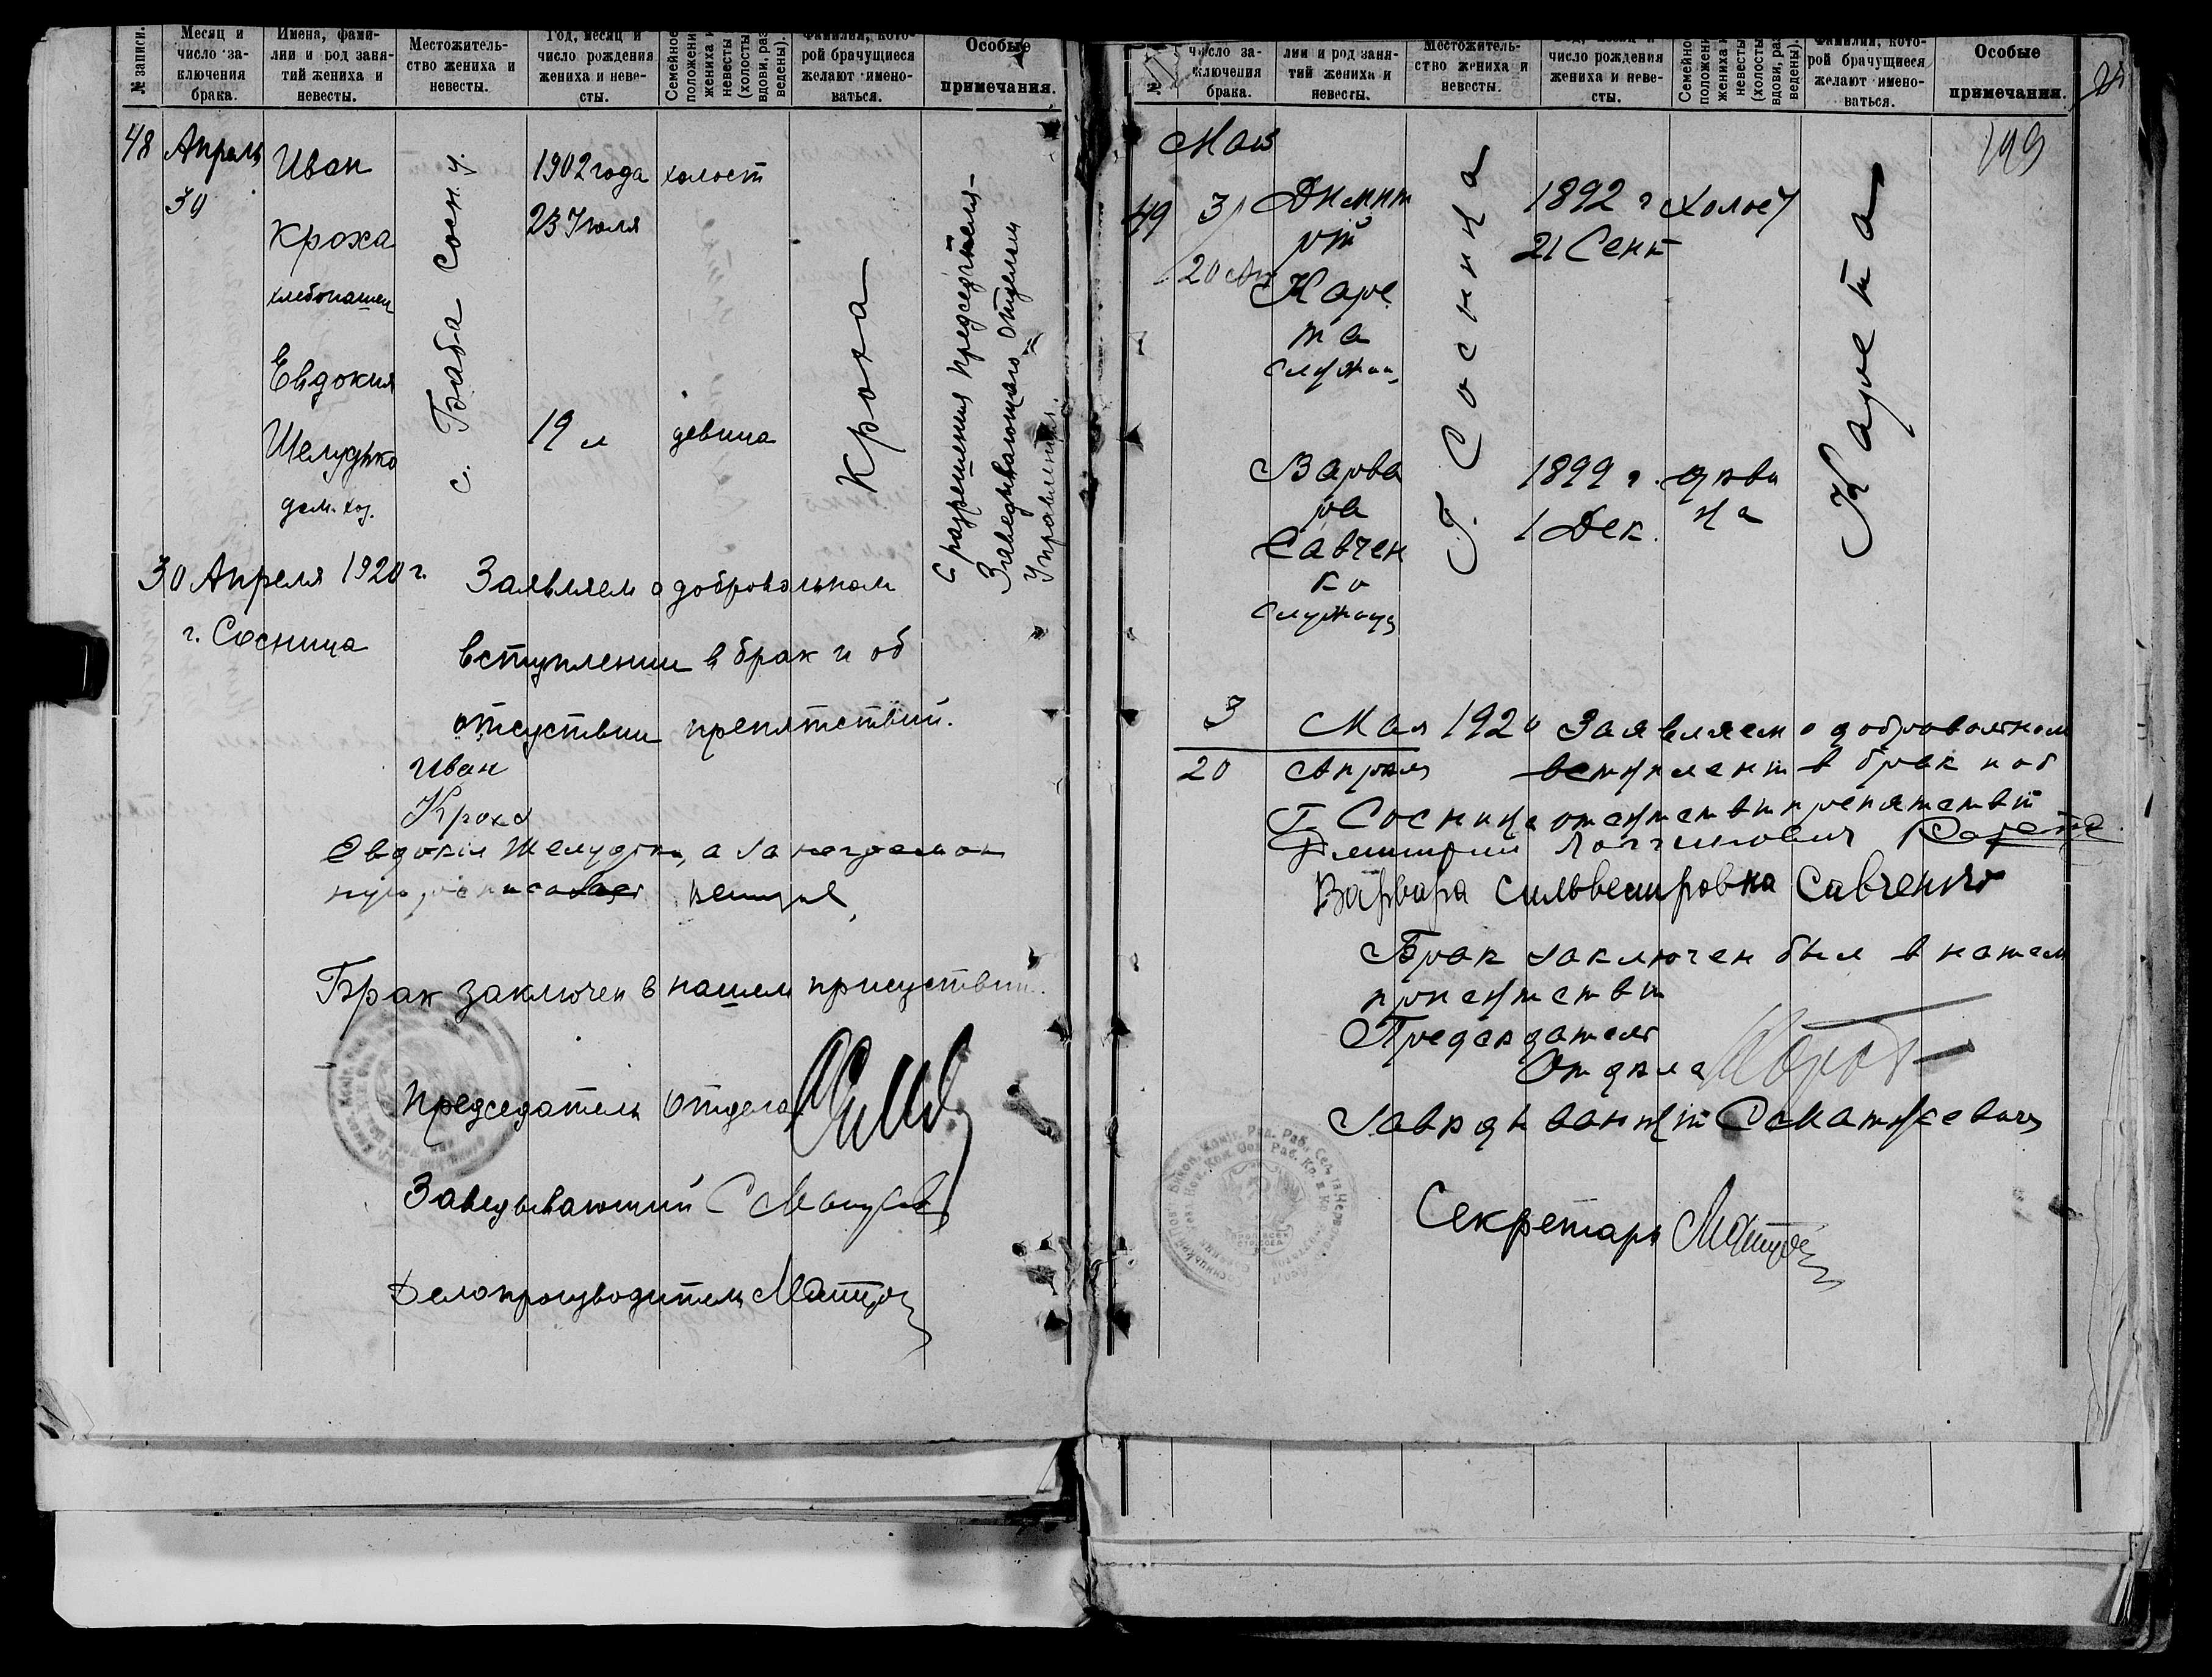 № записи.
Месяц и число за-
ключения
брака.
Имена, фами-
лии и род заня-
тий жениха и
невесты.
Местожитель-
ство жениха и
невесты.
Год, месяц и
число рождения
жениха и неве-
сты.
Семейное
положени
жениха и
невесты
(холосты
вдовы, раз
ведены).
Фамилии, кото-
рой брачущиеся
желают имено-
ваться.
Особые
примечания.
48 Апрель
30
Иван
Кроха
хлебопашец
Евдокия
Шелудько
дом. хоз.
с. Баба Сосн. у.
1902 года
23 Июля
19 л
холост
девица
Кроха
С разрешения Председателя-
Заведывающого Отделом
Управления.
30 Апреля 1920 г.
г. Сосница
Заявляем о добровольном
вступлении в брак и об
отсуствии препятствий.
Иван
Кроха
Евдокия Шелудько, а за неграмот
ную росписался
Брак заключен в нашем присуствии.
Председатель Отдела
Заведывающий
Делопроизводитель
число за-
ключения
брака.
лии и род заня-
тий жениха и
невесты.
Местожитель-
ство жениха и
невесты.
число рождения
жениха и неве-
сты.
Семейное
положени
жениха и
невесты
(холосты
вдовы, раз
ведены).
Фамилии, кото-
рой брачущиеся
желают имено-
ваться.
Особые
примечания.
199
Май
49 3/
20 Ап
Димит
рій
Каре
та
служащ.
Варва
ра
Савчен
ко
служащ
Г. Сосница
1892 г
21 Сент
1899 г.
1 Дек.
Холост
дѣви
ца
Карета
3 Мая 1920 Заявляем о добровольном
20 Апреля вступленіи в брак и об
Г. Сосница отсутствіи препятствій
Димитрий Логгинович Карета
Варвара Сильвестровна Савченко
Брак заключен был в нашем
присутствіи
Предсѣдатель
Отдѣла
Завѣдывающій
Секретарь